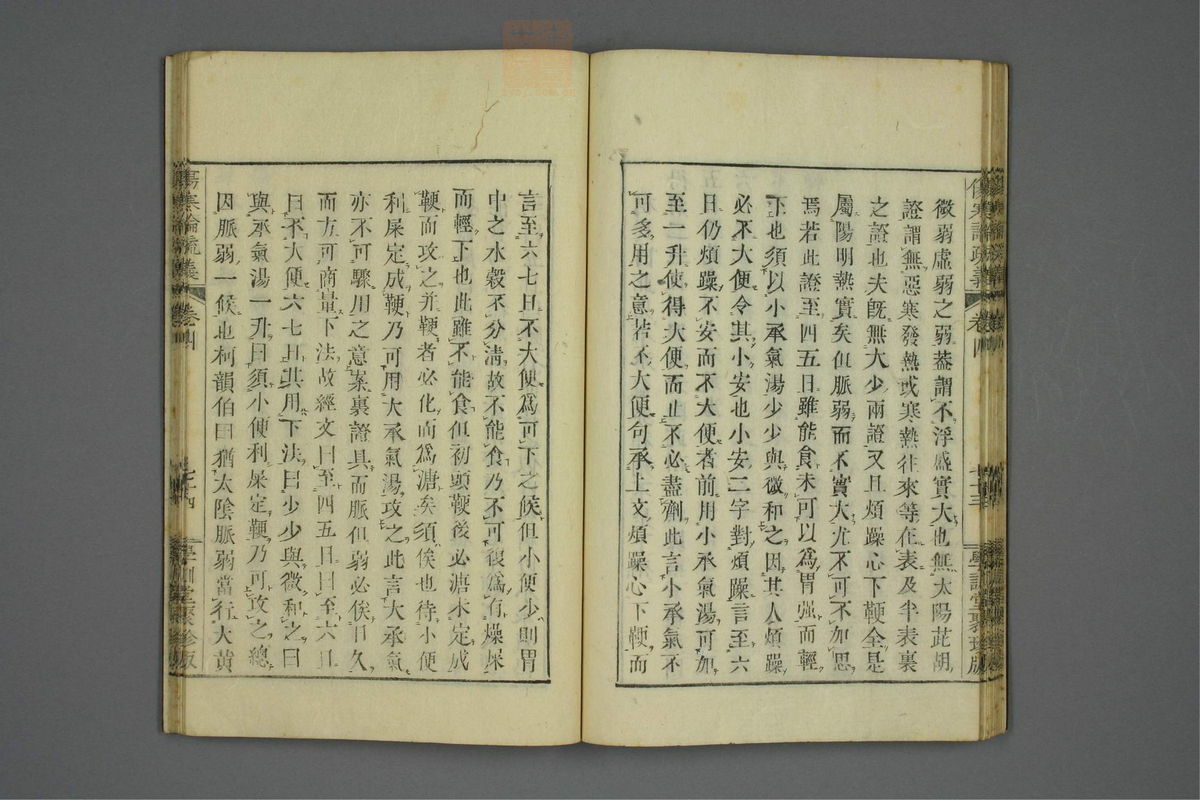 微弱虛弱之弱葢謂不浮盛實大也無太陽茈胡
證謂無惡寒發熱或寒熱往來等在表及半表裏
之證也夫旣無大少兩證又且煩躁心下鞕全是
屬陽明熱實矣但脈弱而不實大尤不可不加思
焉若此證至四五日雖能食未可以爲胃强而輕
下也須以小承氣湯少少與微和之因其人煩躁
必不大便令其小安也小安二字對煩躁言至六
日仍煩躁不安而不大便者前用小承氣湯可加
至一升使得大便而止不必盡劑此言小承氣不
可多用之意若不大便句承上文煩躁心下鞕而
傷寒論疏義
卷四
七十三
學訓堂聚珍版
言至六七日不大便爲可下之候但小便少則胃
中之水穀不分淸故不能食乃不可視爲有燥屎
而輕下也此雖不能食但初頭鞕後必溏未定成
鞕而攻之并鞕者必化而爲溏矣須俟也待小便
利屎定成鞕乃可用大承氣湯攻之此言大承氣
亦不可驟用之意案裏證具而脈但弱必俟日久
而方可商量下法故經文曰至四五日曰至六日
曰不大便六七日其用下法曰少少與微和之曰
與承氣湯一升曰須小便利屎定鞕乃可攻之總
因脈弱一候也柯韻伯曰猶太陰脈弱當行大黃
傷寒論疏義
卷四
七十四
學訓堂聚珍版